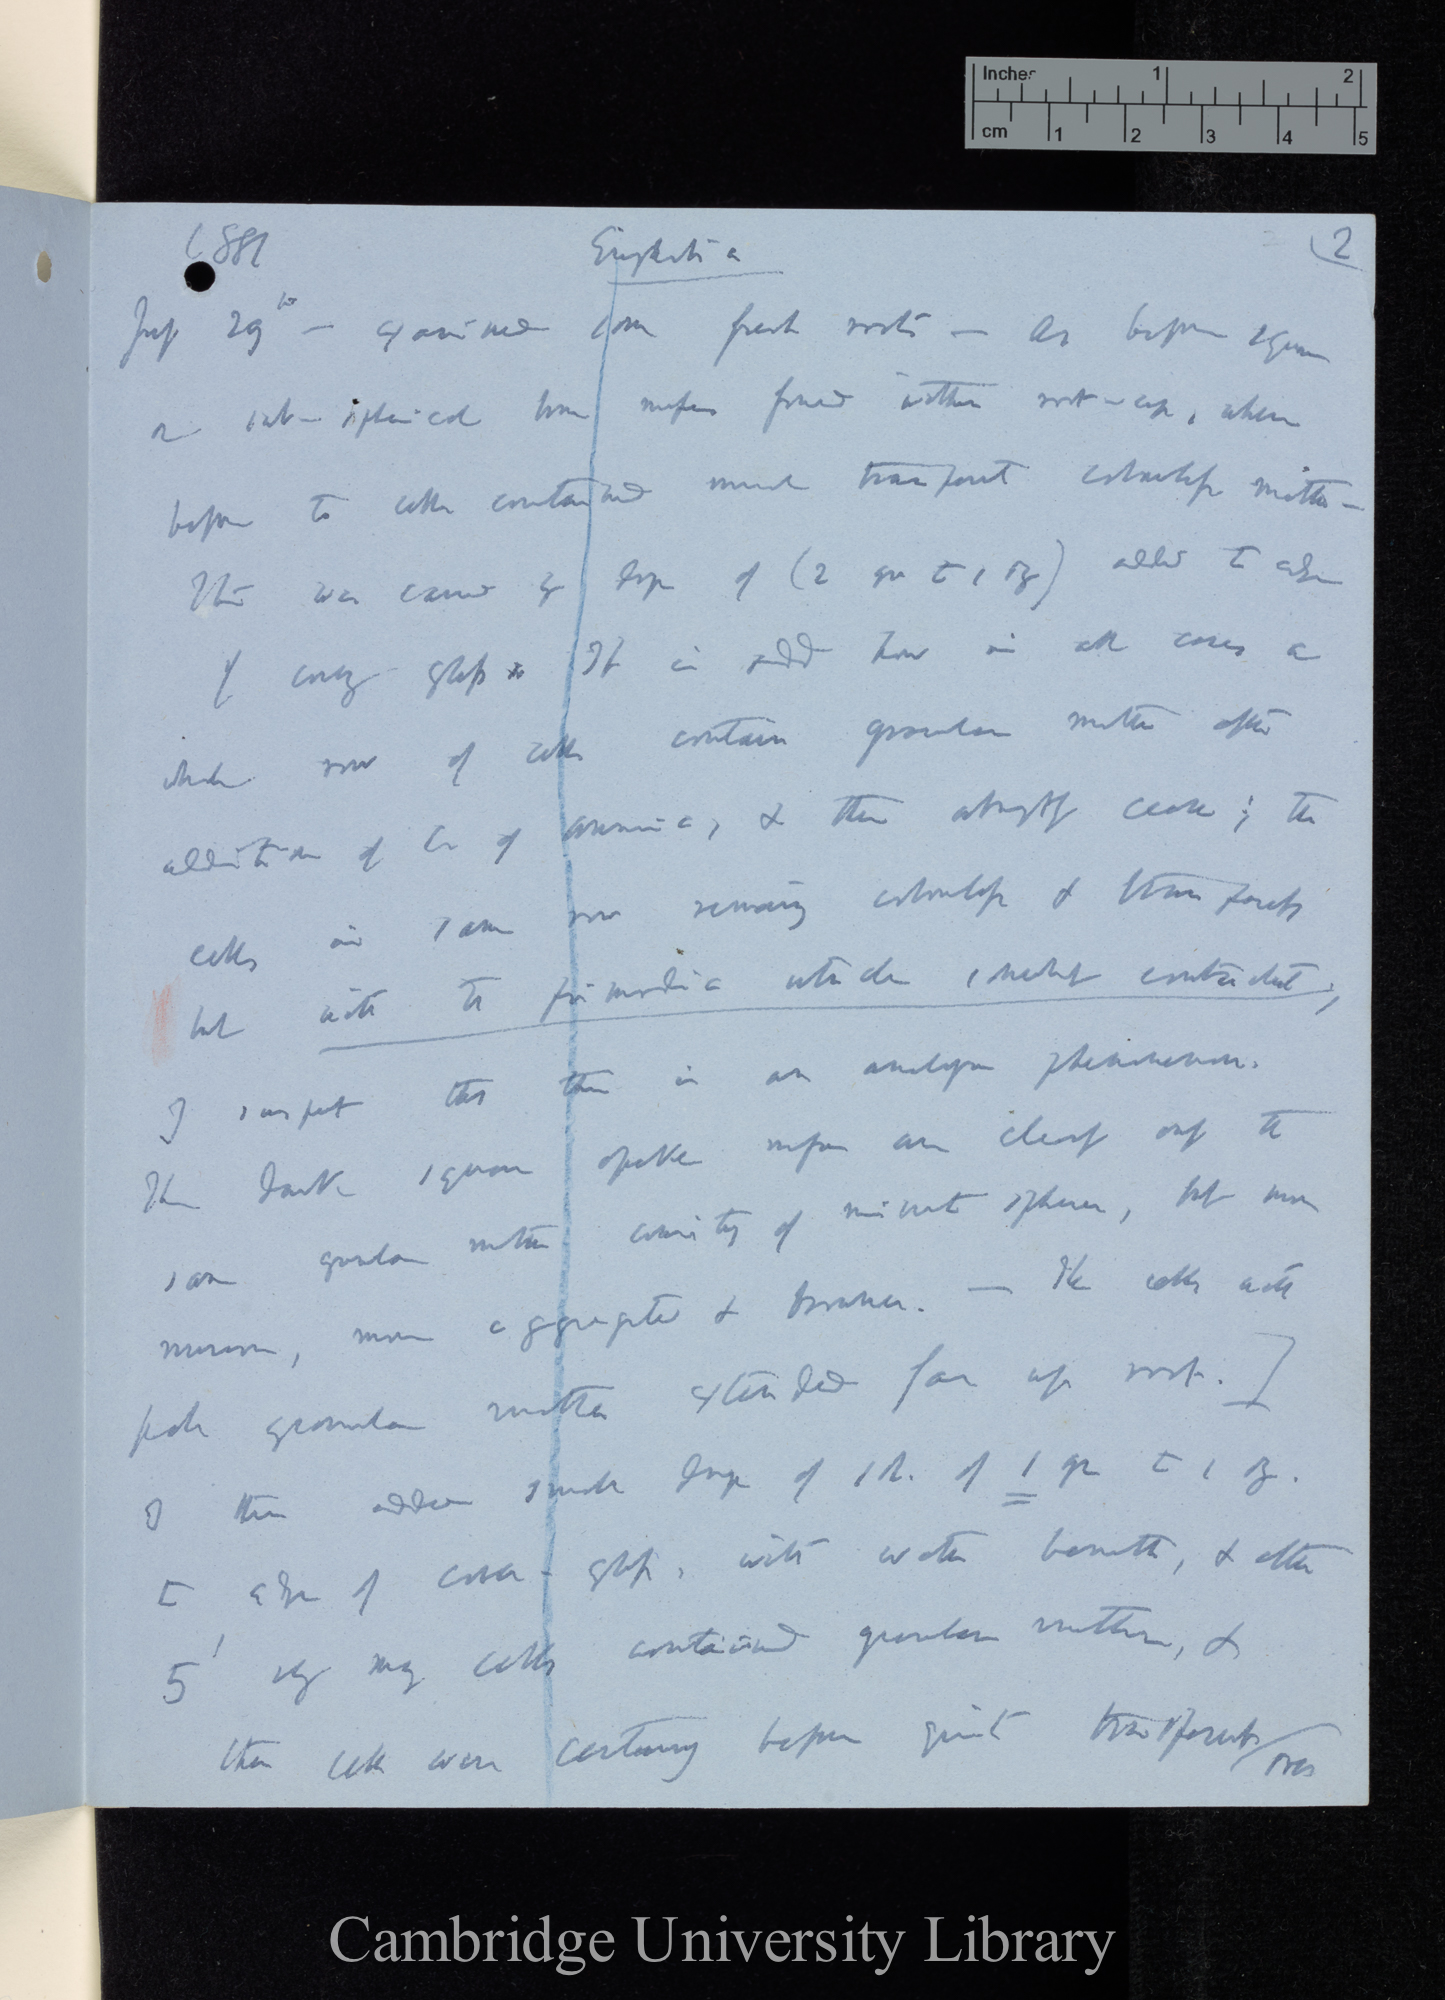 Inches 1 2
cm 1 2 3 4 5
1881
(2
29th — examined some fresh roots — As before square
or sub-spherical brown masses found within root-cap, where
before the cells contained much transparent colourless matter —
This was caused by drop of (2 gr to 1 oz) added to edge
of cover-glass. It is odd how in all cases a
whole row of cells contain granular matter after
addition of C. of ammonia, & then abruptly cease; the
cells in same row remaining colourless & transparent
but with the primordial utricle slightly contracted;
I suspect that there is an analogous phenomenon.
The dark square masses are clearly only the
same granular matter consisting of minute spheres, but more
numerous, more aggregated & browner. — The cells with
pale granular matter extended far up root.]
I then added small drop of sol. of 1 gr to 1 oz.
to edge of cover-glass, with water beneath, & after
5' many cells contained granular matter, &
these cells were certainly before quite transparent/
Cambridge University Library